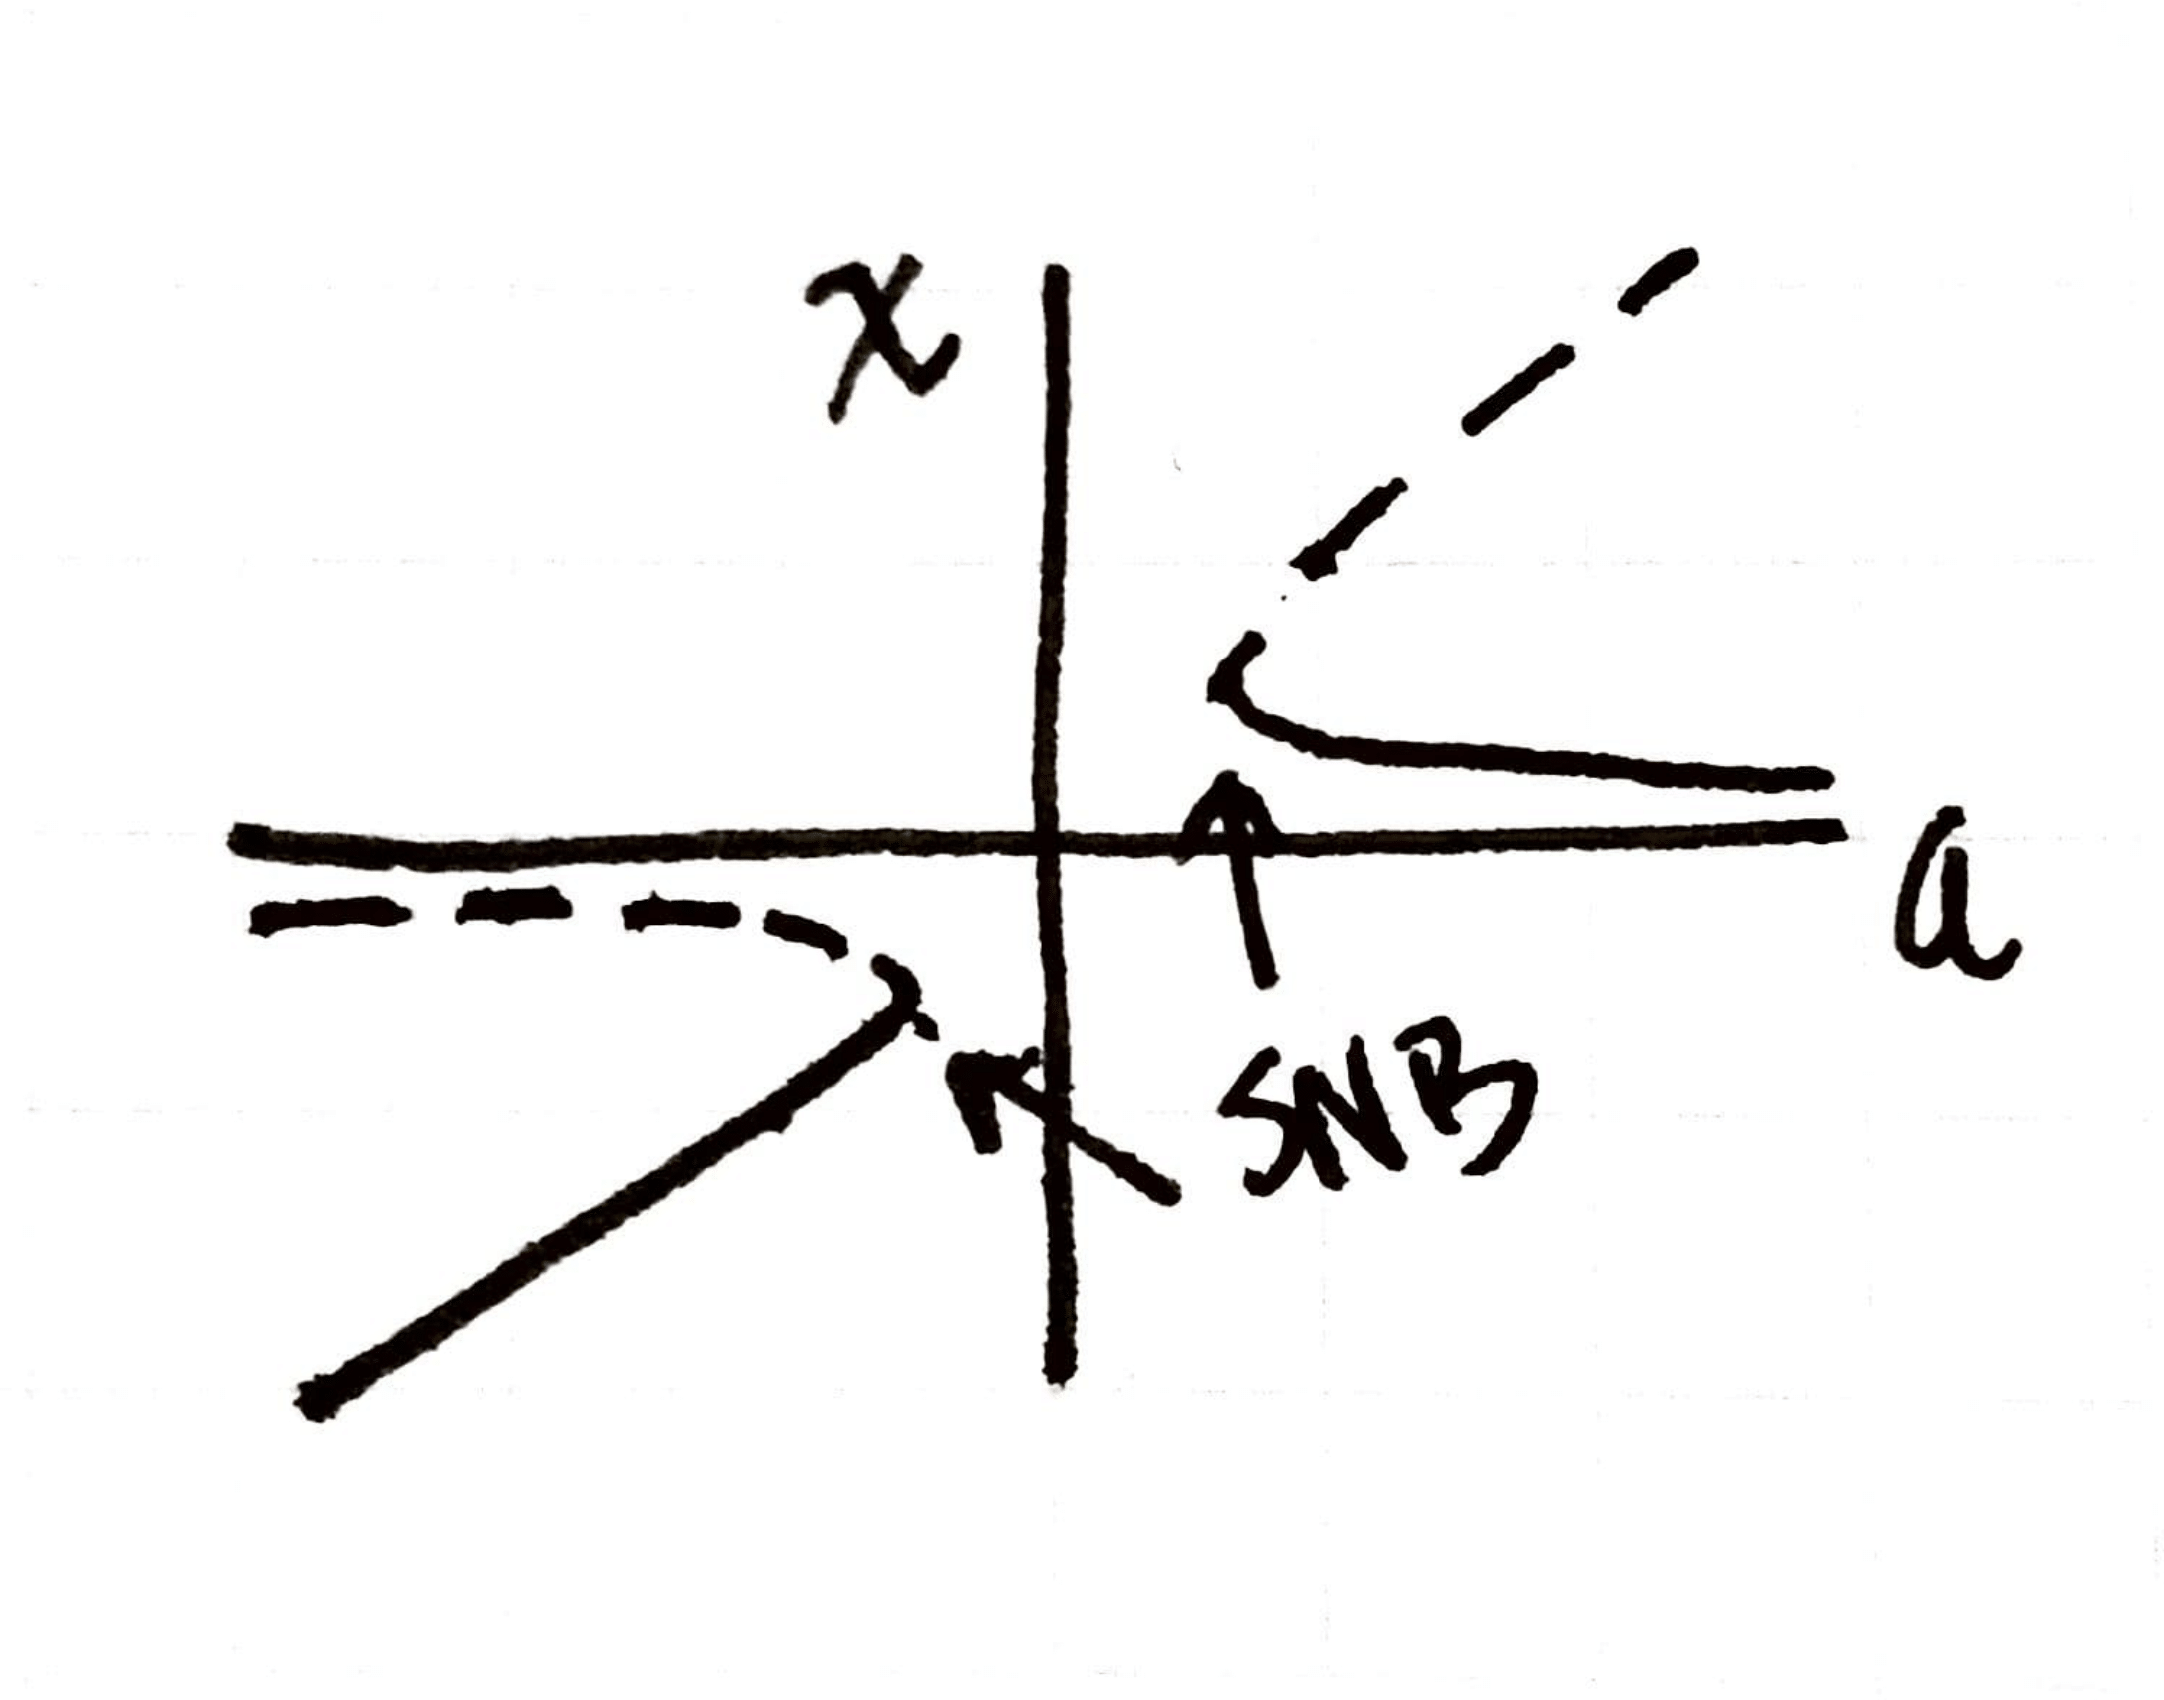 x
a
SNB